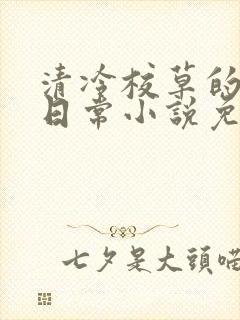 清冷校草的
日常小說免
七夕是大頭喵